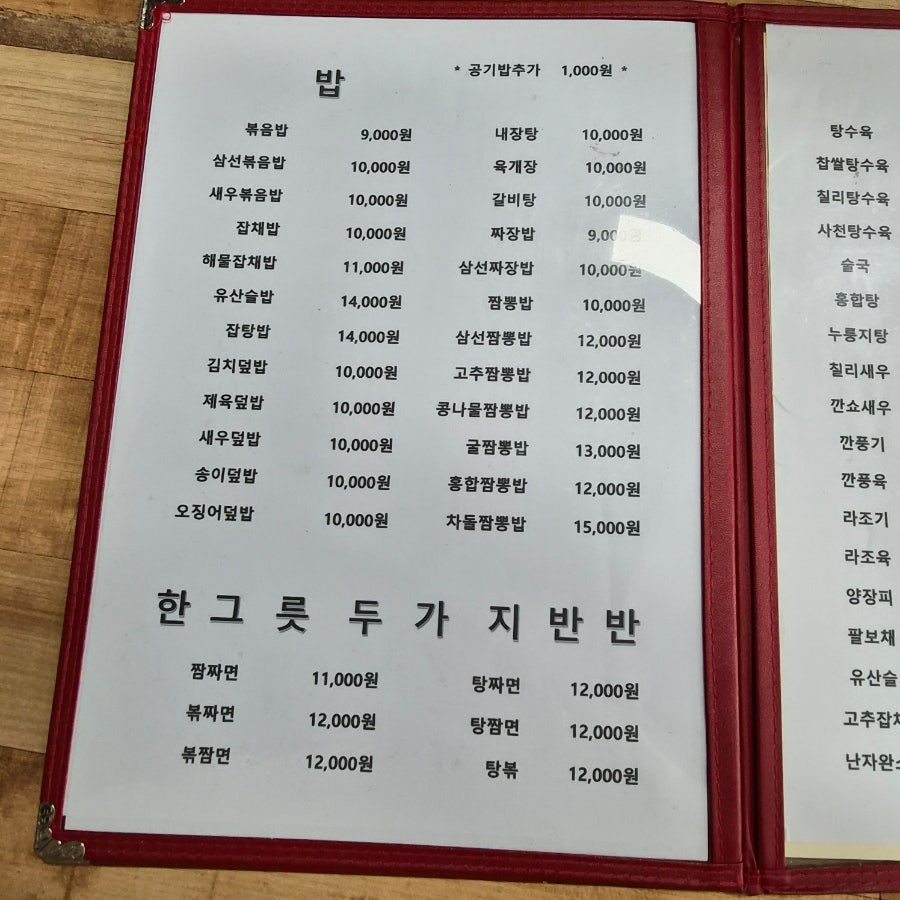 밥
* 공기밥추가 1,000원 *
볶음밥 9,000원
삼선볶음밥 10,000원
새우볶음밥 10,000원
잡채밥 10,000원
해물잡채밥 11,000원
유산슬밥 14,000원
잡탕밥 14,000원
김치덮밥 10,000원
제육덮밥 10,000원
새우덮밥 10,000원
송이덮밥 10,000원
오징어덮밥 10,000원
내장탕 10,000원
육개장 10,000원
갈비탕 10,000원
짜장밥 9,000원
삼선짜장밥 10,000원
짬뽕밥 10,000원
삼선짬뽕밥 12,000원
고추짬뽕밥 12,000원
콩나물짬뽕밥 12,000원
굴짬뽕밥 13,000원
홍합짬뽕밥 12,000원
차돌짬뽕밥 15,000원
한 그 릇 두 가 지 반 반
짬짜면 11,000원
볶짜면 12,000원
볶짬면 12,000원
탕짜면 12,000원
탕짬면 12,000원
탕볶 12,000원
탕수육
찹쌀탕수육
칠리탕수육
사천탕수육
술국
홍합탕
누룽지탕
칠리새우
깐쇼새우
깐풍기
깐풍육
라조기
라조육
양장피
팔보채
유산슬
고추잡
난자완